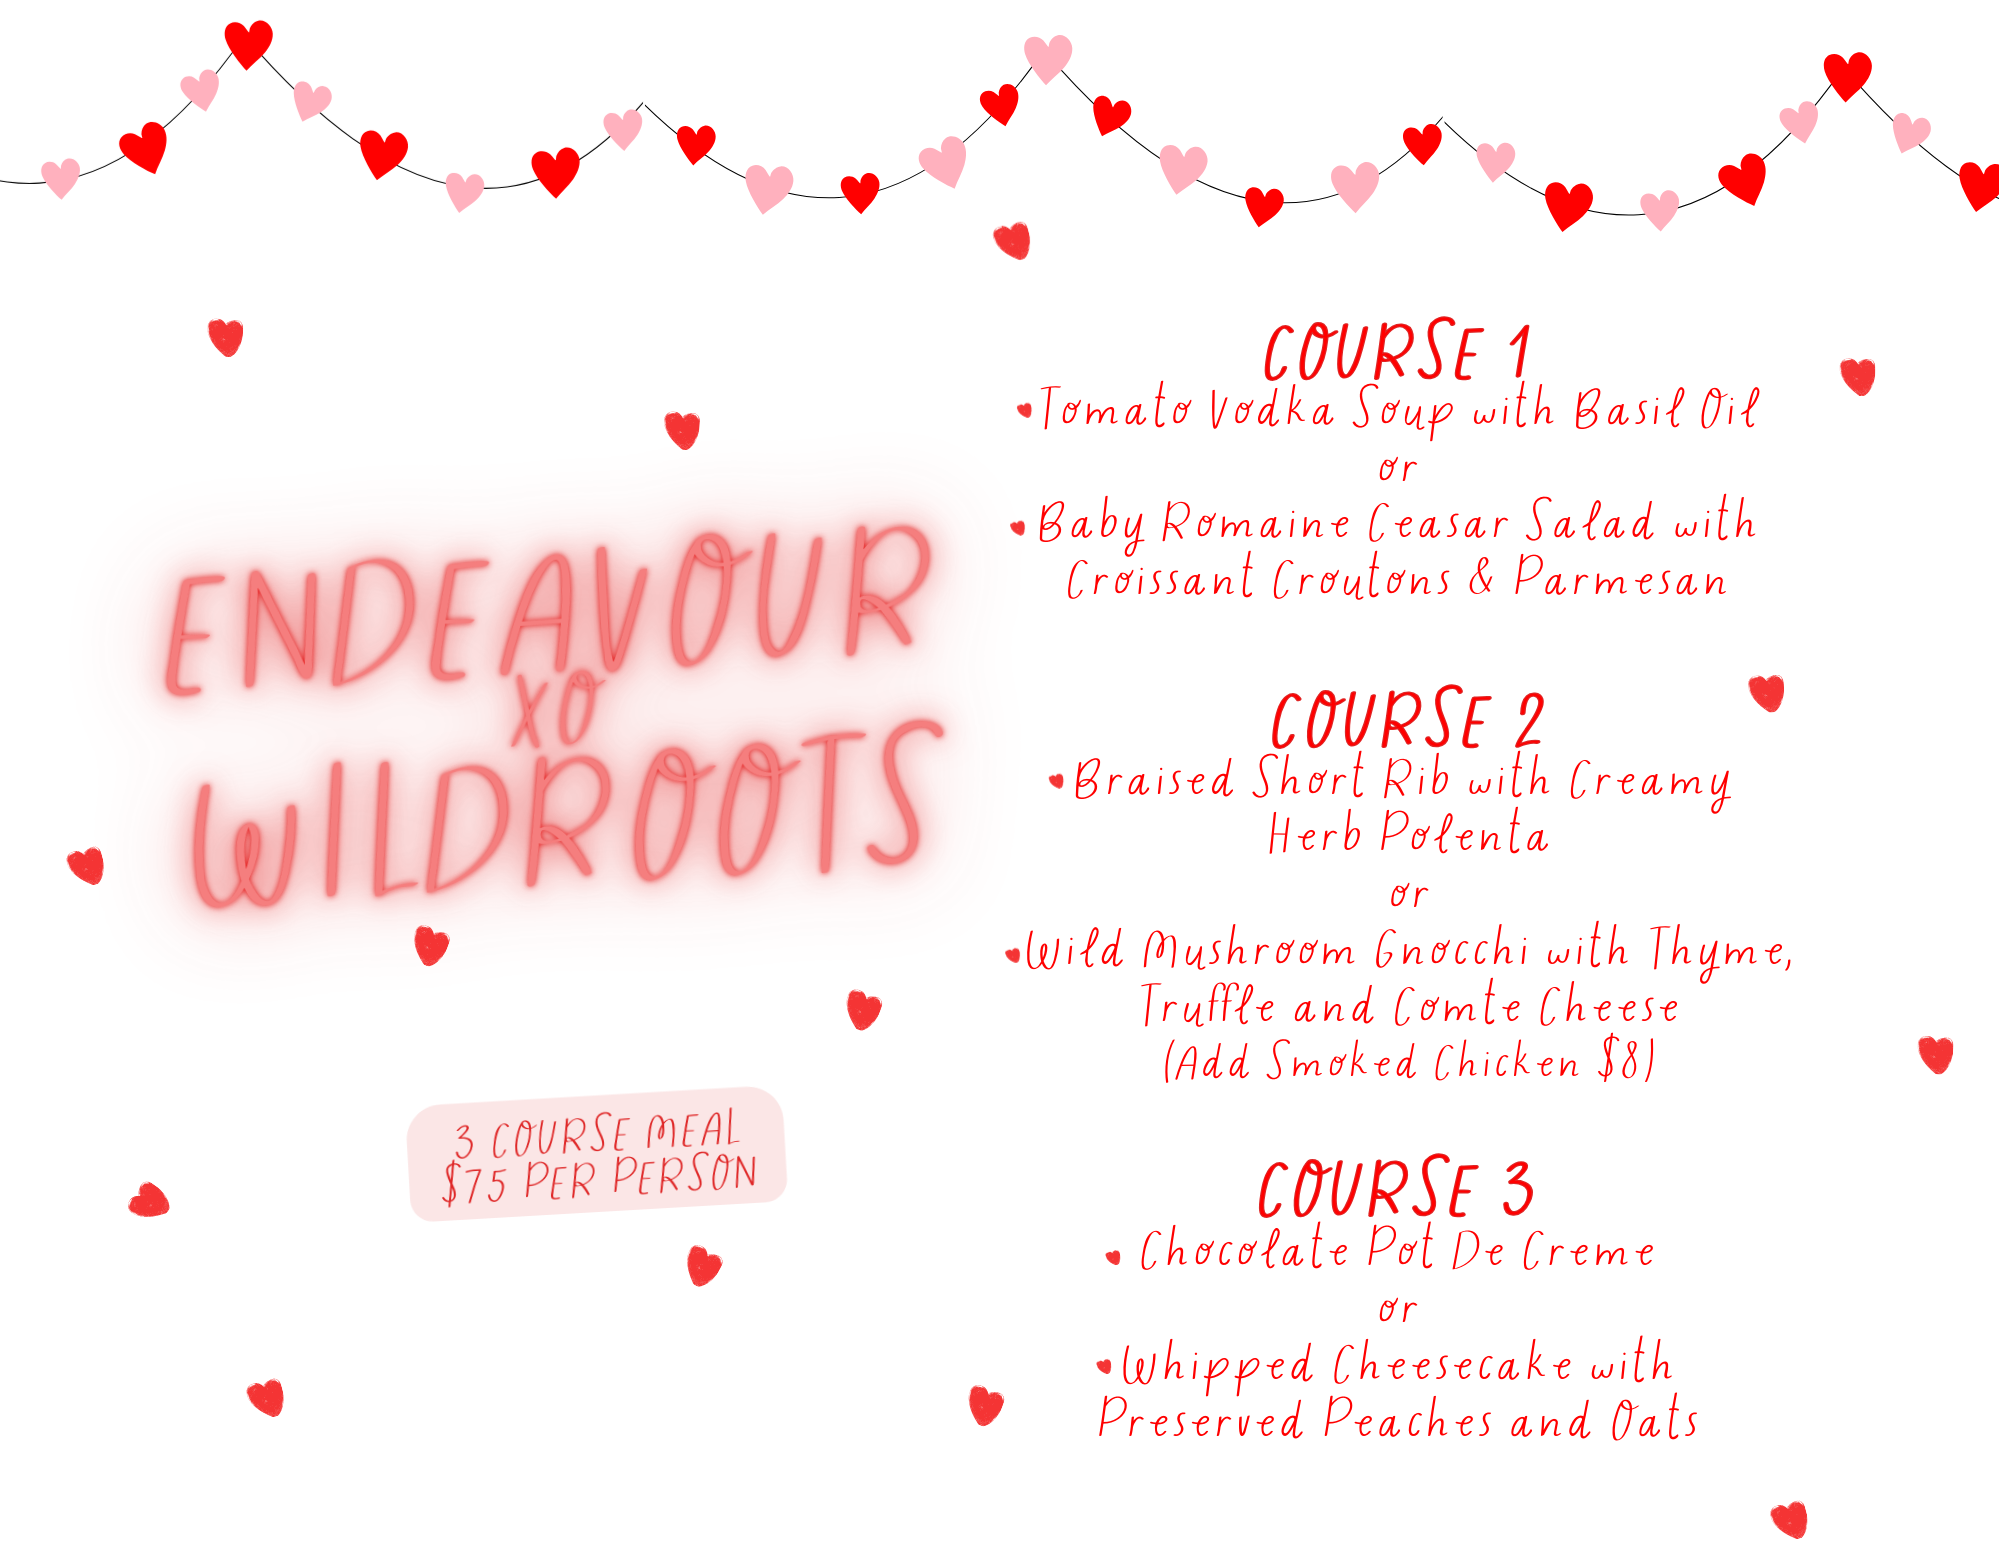 ENDEAVOUR
XO
WILDROOTS
3 COURSE MEAL
$75 PER PERSON
COURSE 1
Tomato Vodka Soup with Basil Oil
or
Baby Romaine Ceasar Salad with
Croissant Croutons & Parmesan
COURSE 2
Braised Short Rib with Creamy
Herb Polenta
or
Wild Mushroom Gnocchi with Thyme,
Truffle and Comte Cheese
(Add Smoked Chicken $8)
COURSE 3
Chocolate Pot De Creme
or
Whipped Cheesecake with
Preserved Peaches and Oats